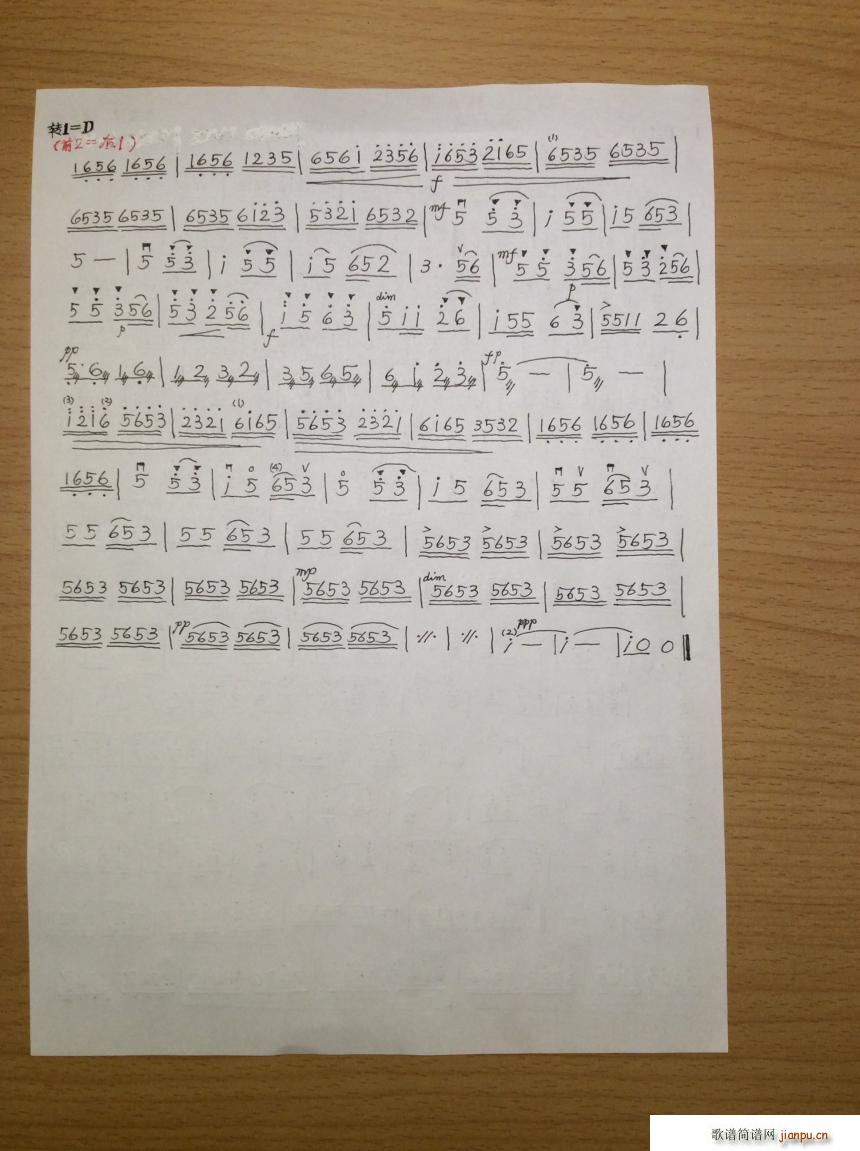 转1=D
(前2=后1)
1656 1656 | 1656 1235 | 6561 2356 | 1653 2165 | 6535 6535 |
f
(1)
6535 6535 | 6535 6123 | 5321 6532 | mf 5 5 3 | i 5 5 | i 5 653 |
5 — | 5 5 3 | i 5 5 | i 5 652 | 3 · 56 | mf 5 5 356 | 53 256 |
p
5 5 356 | 53 256 | i 5 6 3 | dim 5 i i 2 6 | i 55 6 3 | 5511 2 6 |
p f
pp 5 6 1 6 | 1 2 3 2 | 3 5 6 5 | 6 1 2 3 | fp 5 — | 5 — |
(3) (2) (1)
i2i6 5653 | 2321 6165 | 5653 2321 | 6165 3532 | 1656 1656 | 1656
1656 | 5 5 3 | i 5 (4) 653 | 5 5 3 | i 5 653 | 5 5 653 |
5 5 653 | 5 5 653 | 5 5 653 | 5653 5653 | 5653 5653 |
5653 5653 | 5653 5653 | mp 5653 5653 | dim 5653 5653 | 5653 5653 |
5653 5653 | pp 5653 5653 | 5653 5653 | ·//· | ·//· | (2) ppp i — | i — | i0 0 ‖
歌谱简谱网 jianpu.cn